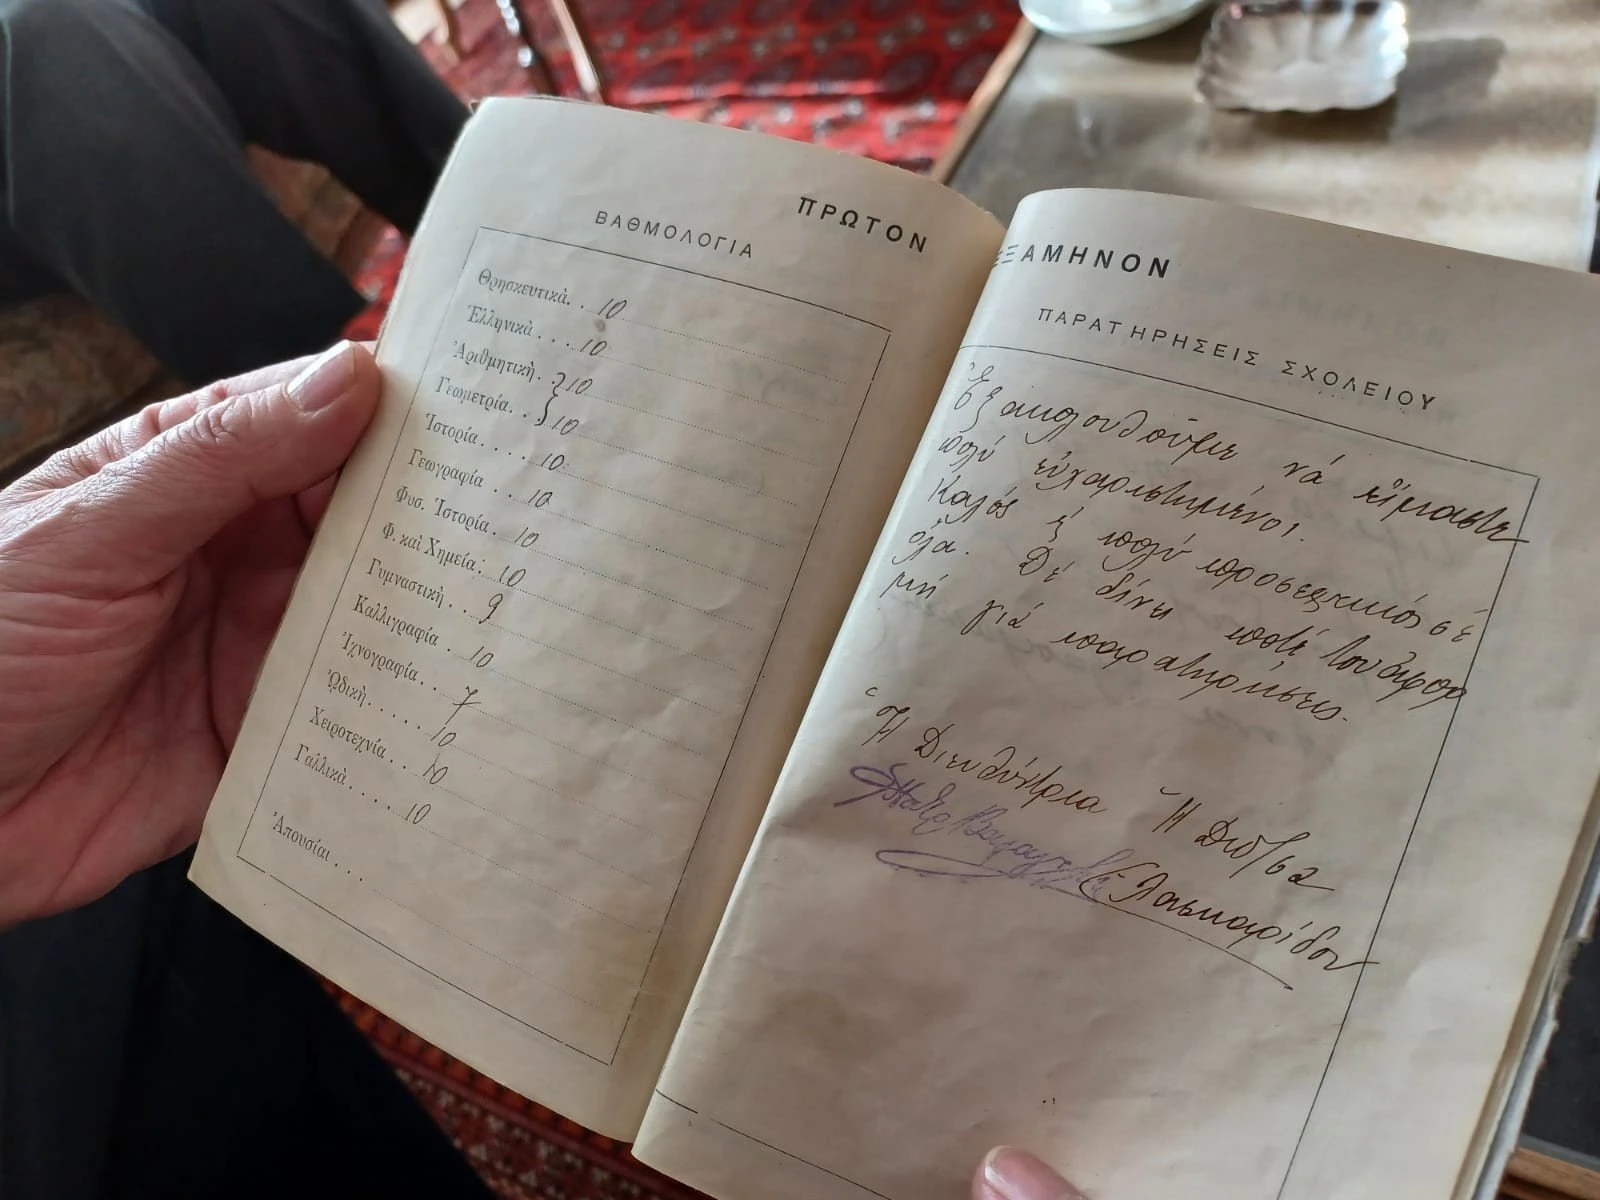 ΠΡΩΤΟΝ
ΒΑΘΜΟΛΟΓΙΑ
Θρησκευτικὰ. . 10
Ἑλληνικὰ . . . 10
Ἀριθμητικὴ . 10
Γεωμετρία. . 10
Ἱστορία. . . . 10
Γεωγραφία . . 10
Φυσ. Ἱστορία. 10
Φ. καὶ Χημεία. 10
Γυμναστικὴ . . 9
Καλλιγραφία . 10
Ἰχνογραφία. . 7
Ὠδικὴ. . . . . . 10
Χειροτεχνία . . 10
Γαλλικὰ. . . . 10
Ἀπουσίαι . . .
ΕΞΑΜΗΝΟΝ
ΠΑΡΑΤΗΡΗΣΕΙΣ ΣΧΟΛΕΙΟΥ
Ἐξακολουθοῦμε νά εἴμαστε
πολύ εὐχαριστημένοι.
Καλός & πολύ προσεκτικός σέ
ὅλα. Δέ δίνει ποτέ του ἀφορ
μή γιά παρατηρήσεις.
Ἡ Διευθύντρια Ἡ Δ/σα
Λασκαρίδου